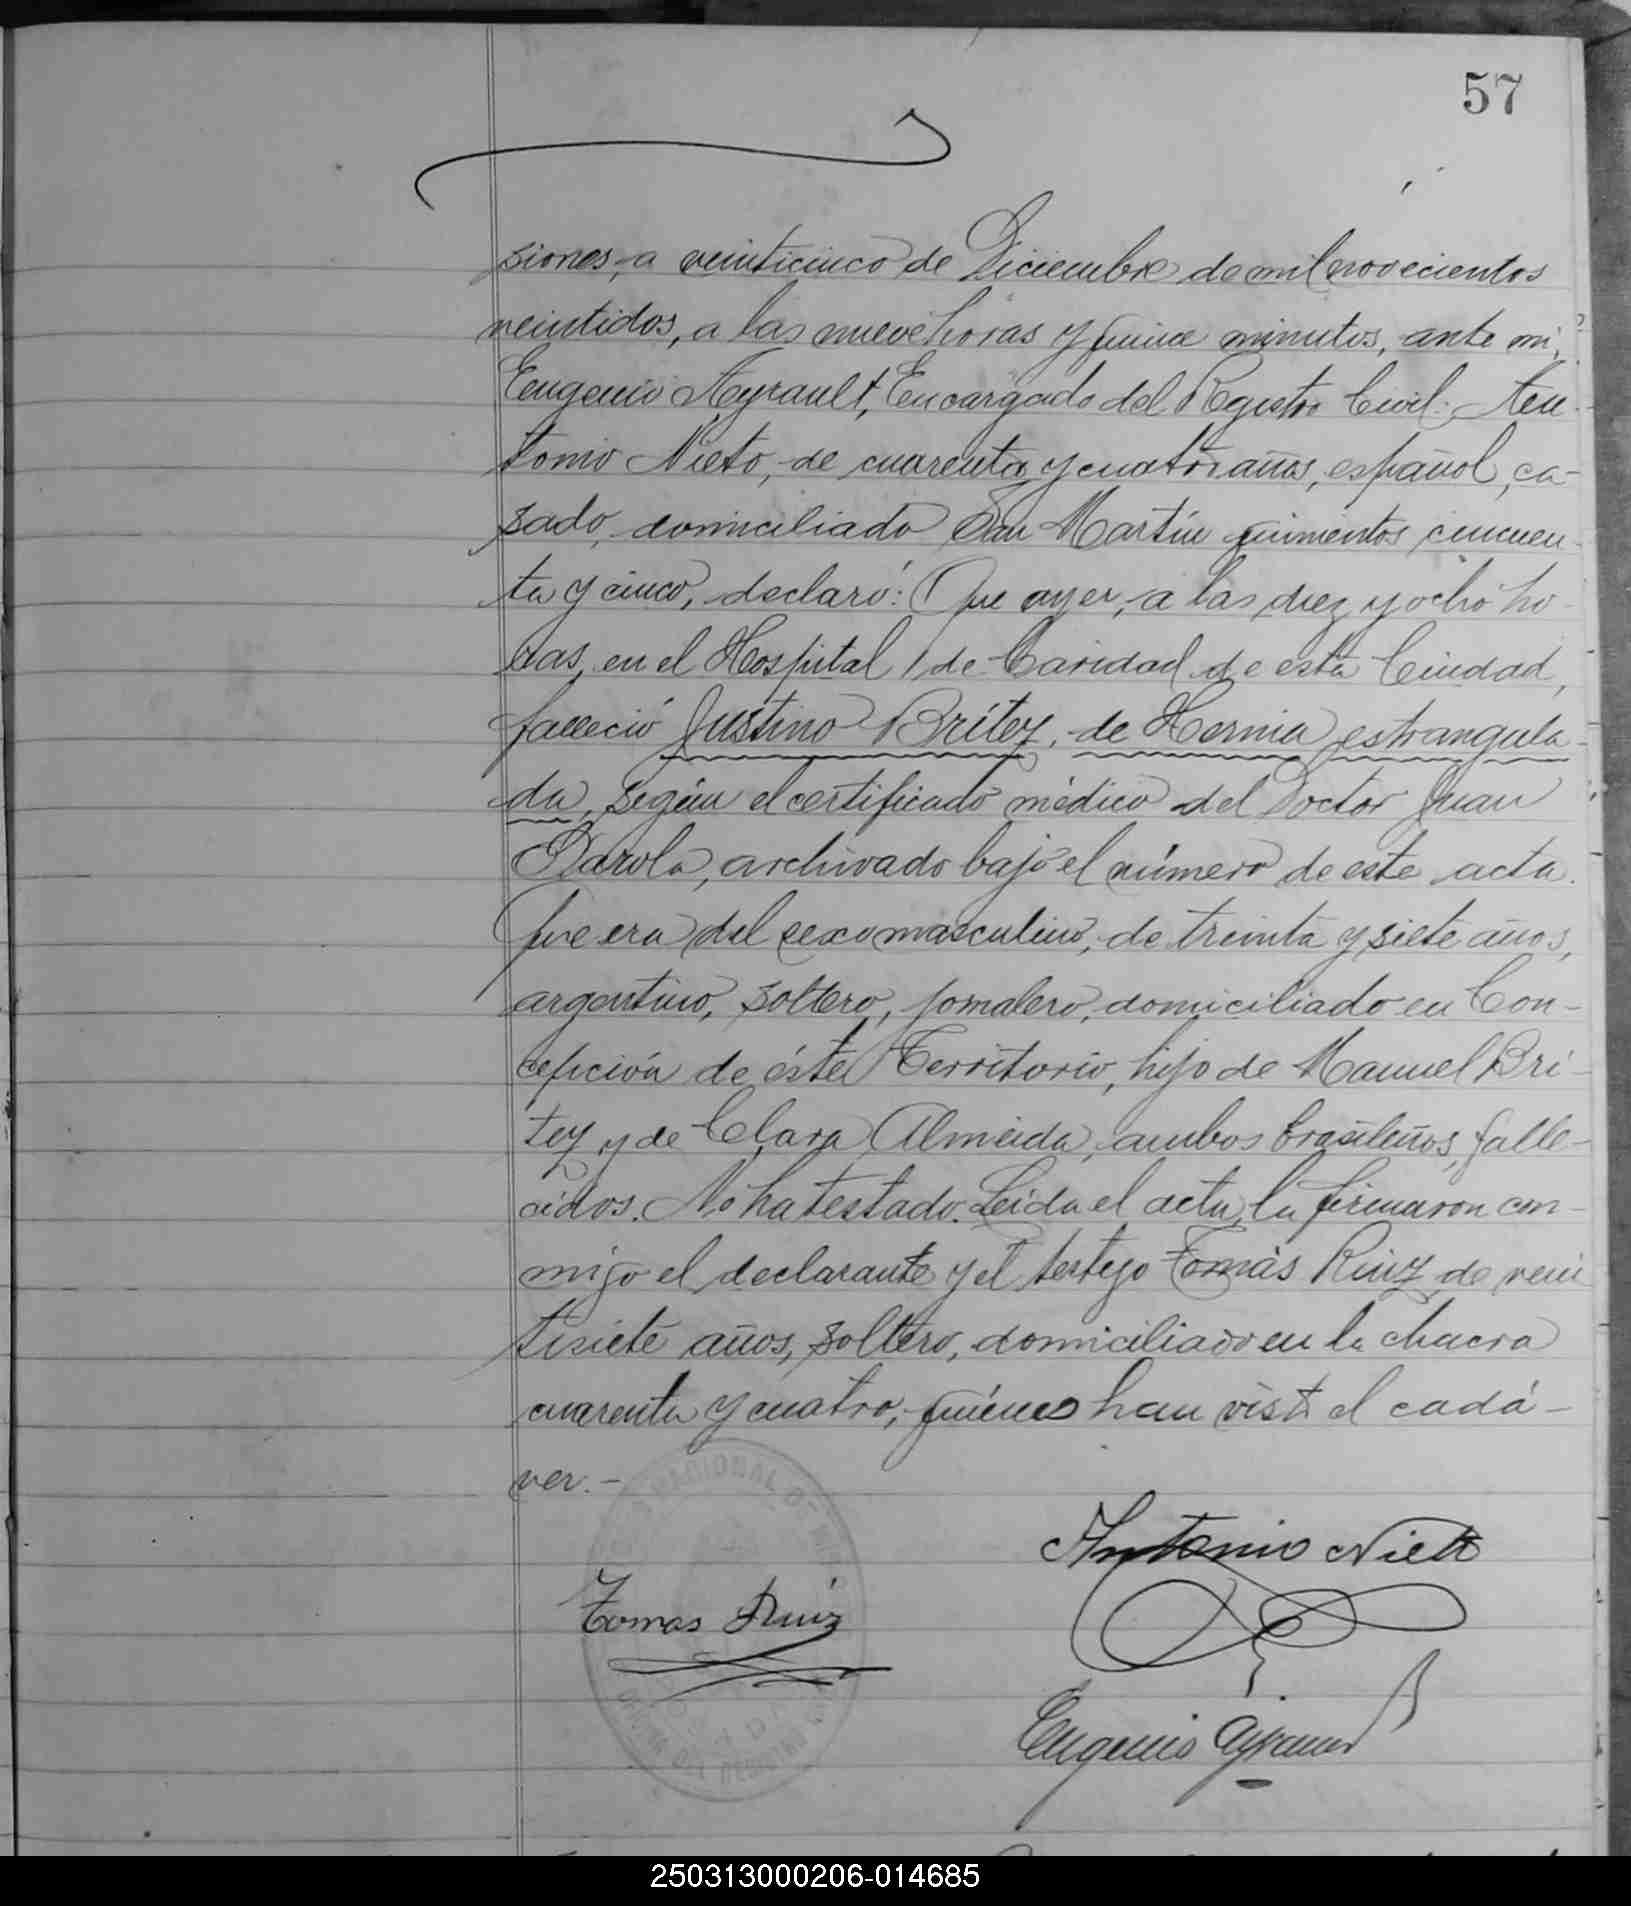 57
siones, a veinticinco de Diciembre de mil novecientos
veintidos, a las nueve horas y quince minutos, ante mi,
Eugenio Ayrault, Encargado del Registro Civil: An-
tonio Nieto, de cuarenta y cuatro años, español, ca-
sado, domiciliado San Martin quinientos cincuen-
ta y cinco, declaró: Que ayer, a las diez y ocho ho-
ras, en el Hospital de Caridad de esta Ciudad,
falleció Justino Britez, de Hernia estrangula-
da, según el certificado médico del Doctor Juan
Barola, archivado bajo el número de este acta.
Que era del sexo masculino, de treinta y siete años,
argentino, soltero, jornalero, domiciliado en Con-
cepción de éste Territorio, hijo de Manuel Bri-
tez y de Clara Almeida, ambos brasileños, falle-
cidos. No ha testado. Leida el acta, la firmaron con-
migo el declarante y el testigo Tomás Ruiz, de vein
tisiete años, soltero, domiciliado en la chacra
cuarenta y cuatro, quiénes han visto el cadá-
ver.-
Antonio Nieto
Tomas Ruiz
Eugenio Ayrault
250313000206-014685